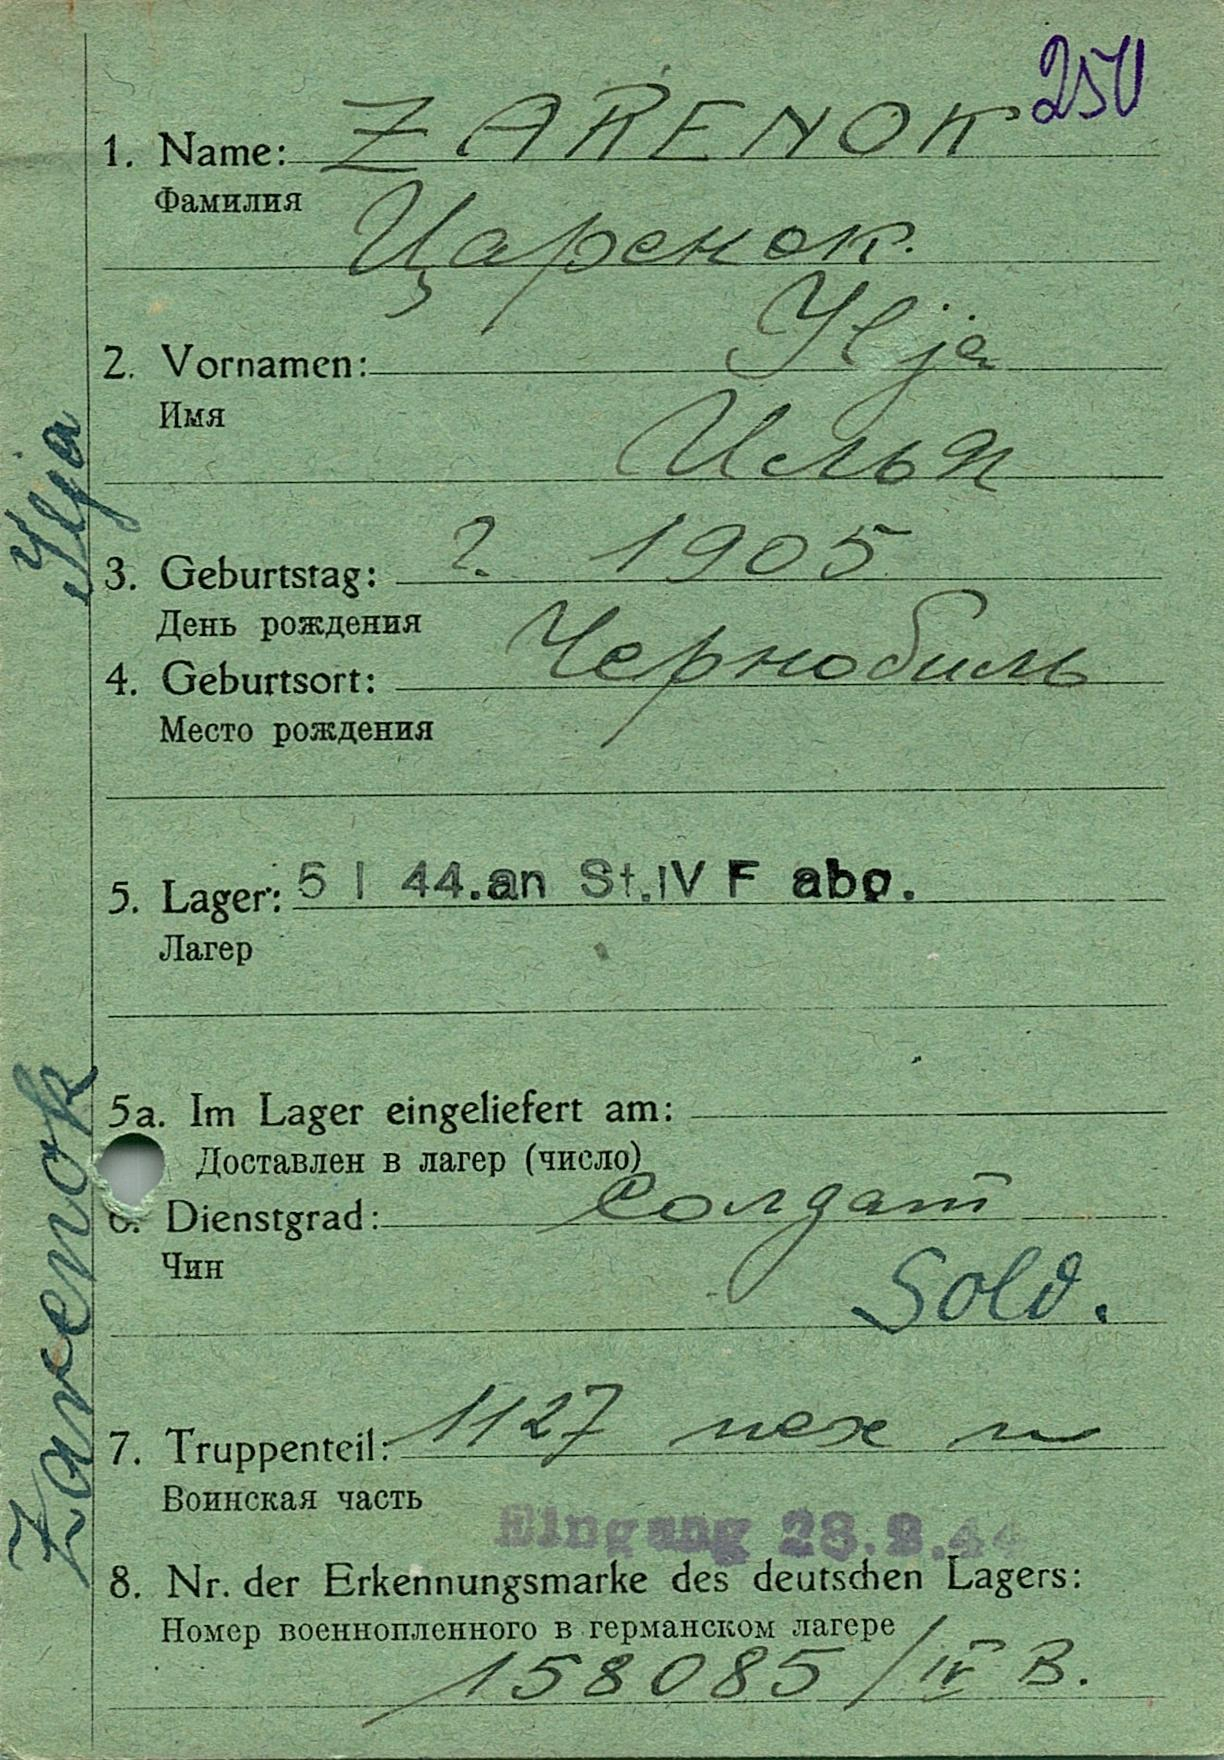 250
1. Name: ZARENOK
Фамилия
Царенок.
Ilja
2. Vornamen:
Имя
Илья
3. Geburtstag: ?. 1905
День рождения
Чернобиль
4. Geburtsort:
Место рождения
5. Lager: 5 I 44.an St.IV F abg.
Лагер
5a. Im Lager eingeliefert am:
Доставлен в лагер (число)
6. Dienstgrad: Солдат
Чин
Sold.
7. Truppenteil: 1127 пех п
Воинская часть
Eingang 28.2.44
8. Nr. der Erkennungsmarke des deutschen Lagers:
Номер военнопленного в германском лагере
158085/IV B.
Zarenok Ilja